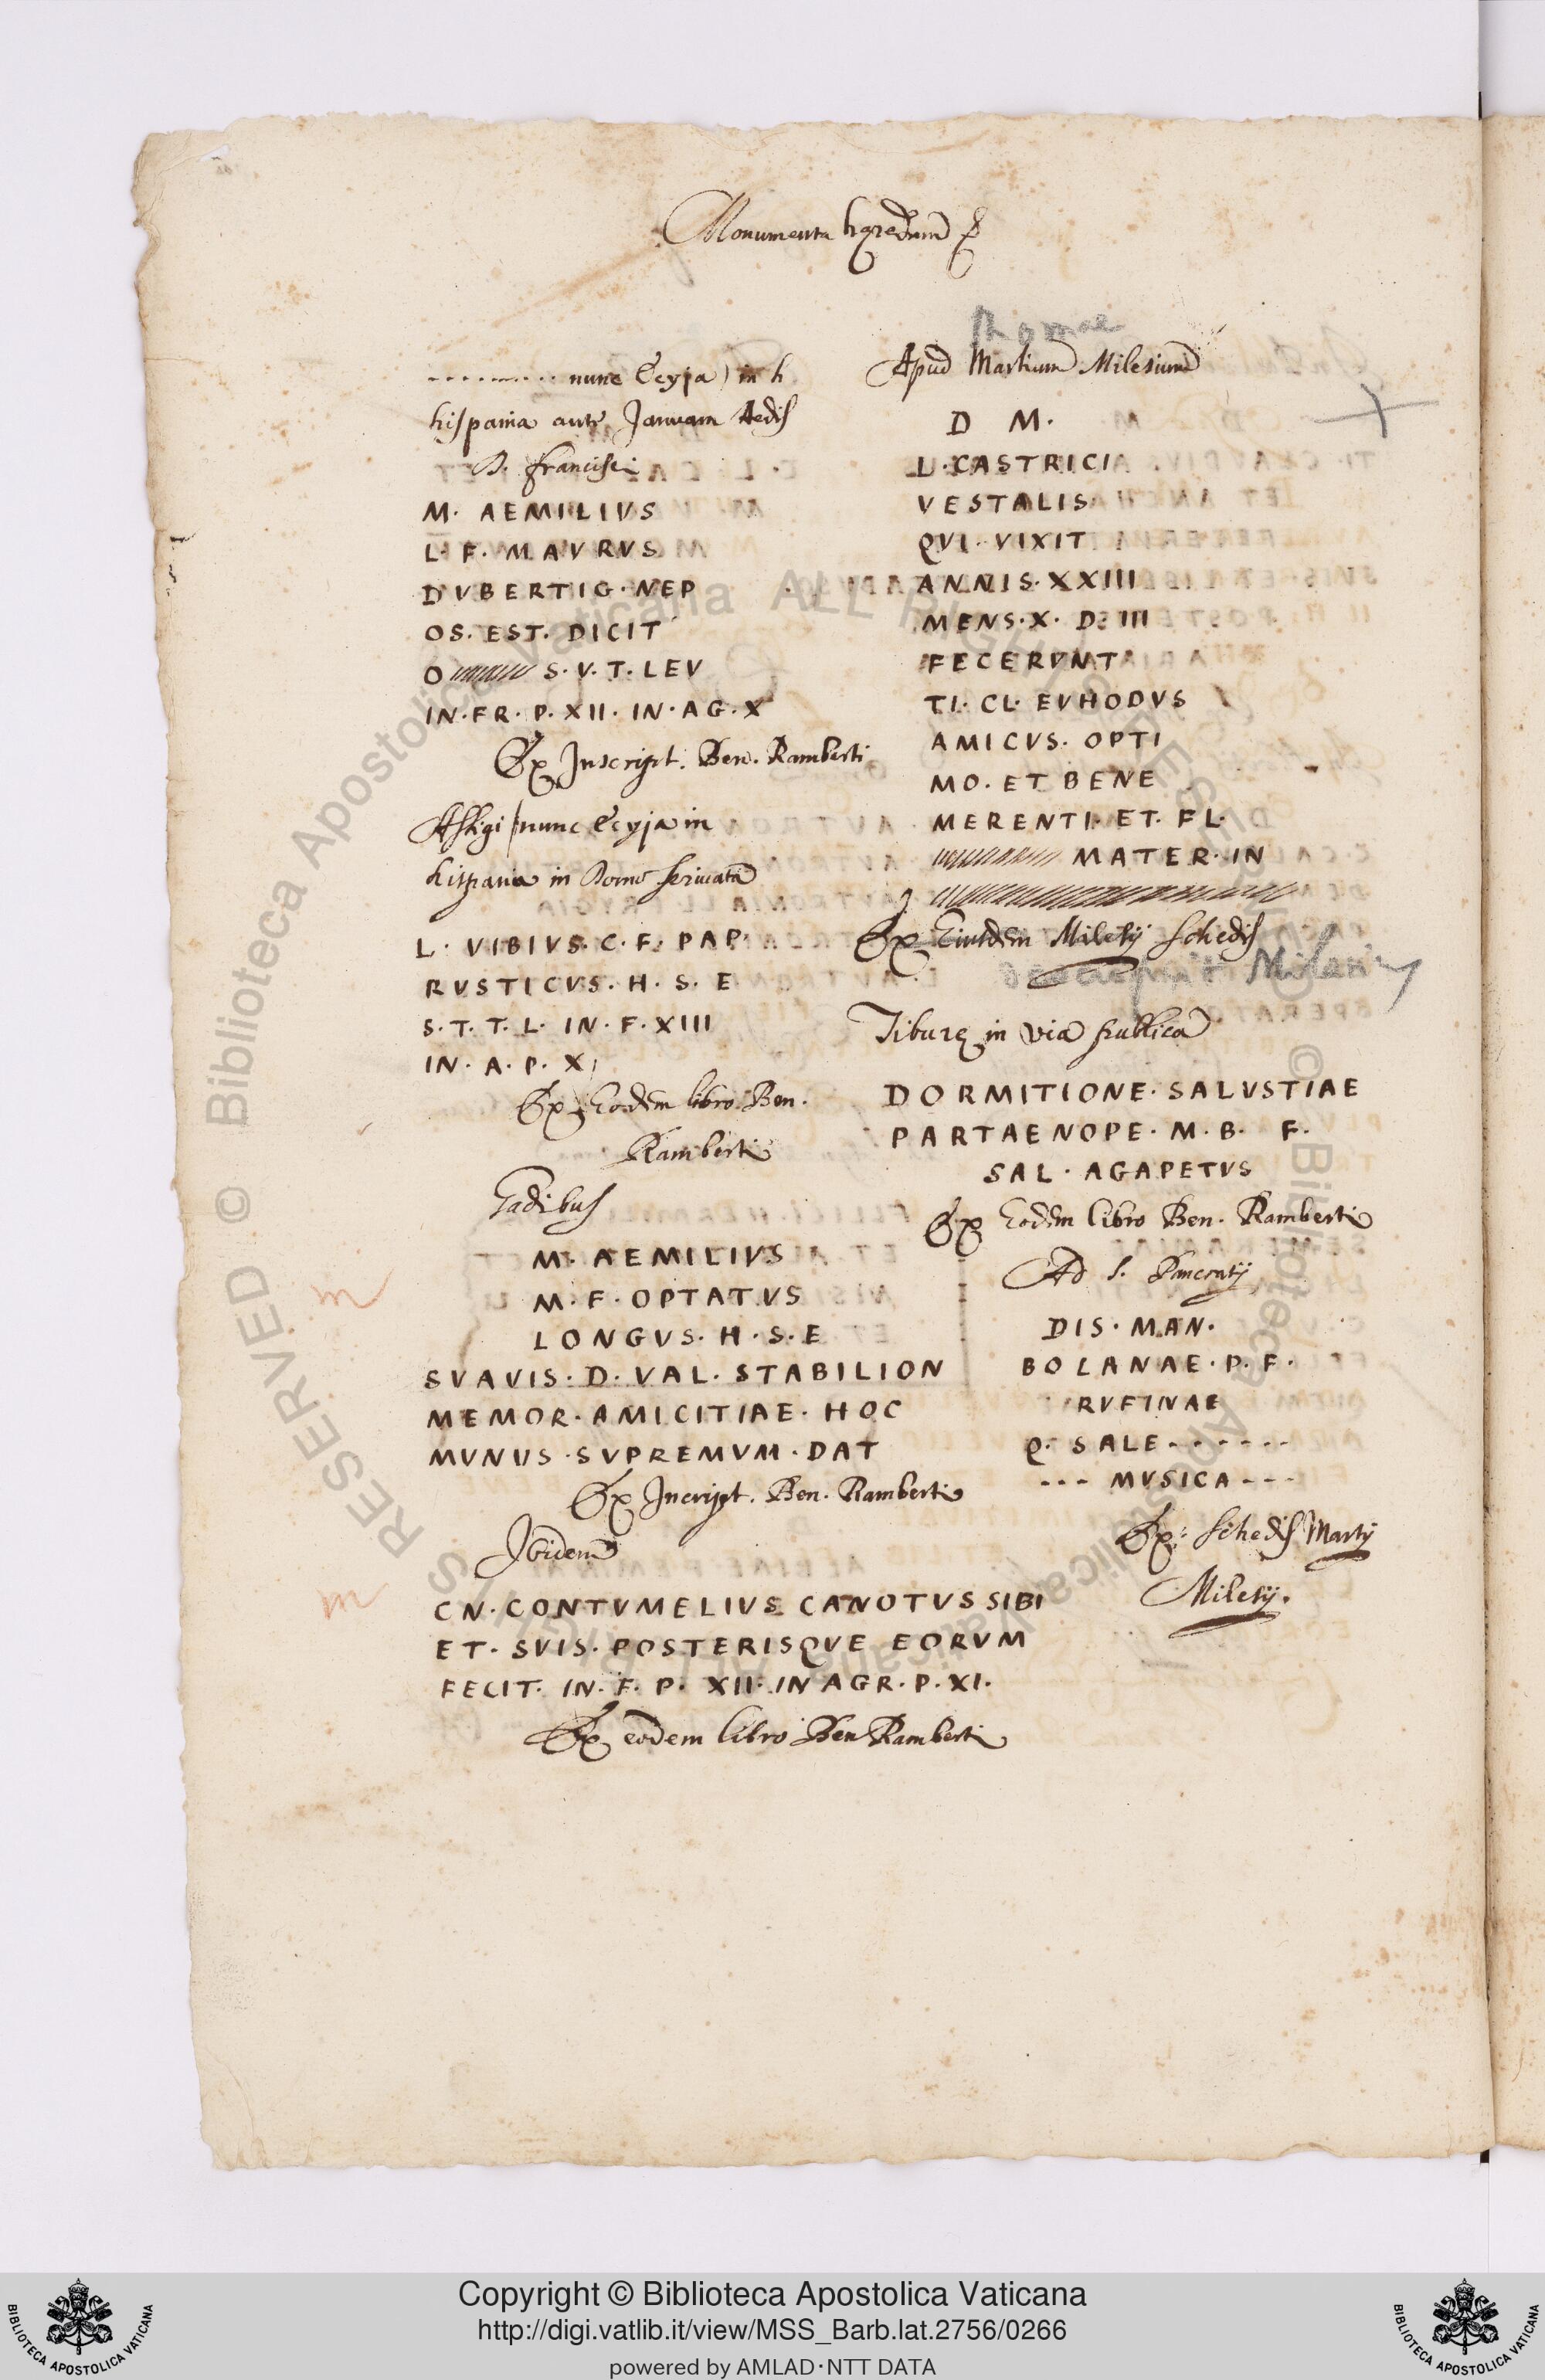 Monumenta hęredum
......... nunc Ecyja) in h
hispania ante Januam Aedis
D. francisci
M. AEMILIVS
L. F. MAVRVS
DVBERTIG. NEP
OS. EST. DICIT
O S. V. T. LEV
IN. FR. P. XII. IN. AG. X
Ex Inscript. Ben. Ramberti
Astigi (nunc Ecyja in
hispania in Domo privata
L. VIBIVS. C. F. PAP
RVSTICVS. H. S. E
S. T. T. L. IN. F. XIII
IN. A. P. X
Ex Eodem libro Ben.
Ramberti
Gadibus
M. AEMILIVS
M. F. OPTATVS
LONGVS. H. S. E
SVAVIS. D. VAL. STABILION
MEMOR. AMICITIAE. HOC
MVNVS. SVPREMVM. DAT
Ex Incript. Ben. Ramberti
Ibidem
CN. CONTVMELIVS CANOTVS SIBI
ET. SVIS. POSTERISQVE EORVM
FECIT. IN. F. P. XII. IN AGR. P. XI.
Ex eodem libro Ben Ramberti
Romae
Apud Martium Milesium
D M.
L. CASTRICI
VESTALIS
QVI. VIXIT
ANNIS. XXIII
MENS. X. D. III
FECERVNT
TI. CL. EVHODVS
AMICVS. OPTI
MO. ET BENE
MERENTI. ET. FL.
MATER. IN
Ex Eiusdem Milesij schedis
Tibure in via publica
DORMITIONE. SALVSTIAE
PARTAENOPE. M. B. F.
SAL. AGAPETVS
Ex Eodem libro Ben. Ramberti
Ad S. Pancratij
DIS. MAN.
BOLANAE. P. F.
RVFINAE
Q. SALE.......
--- MVSICA ---
Ex: schedis Martij
Milesij.
Copyright © Biblioteca Apostolica Vaticana
http://digi.vatlib.it/view/MSS_Barb.lat.2756/0266
powered by AMLAD·NTT DATA